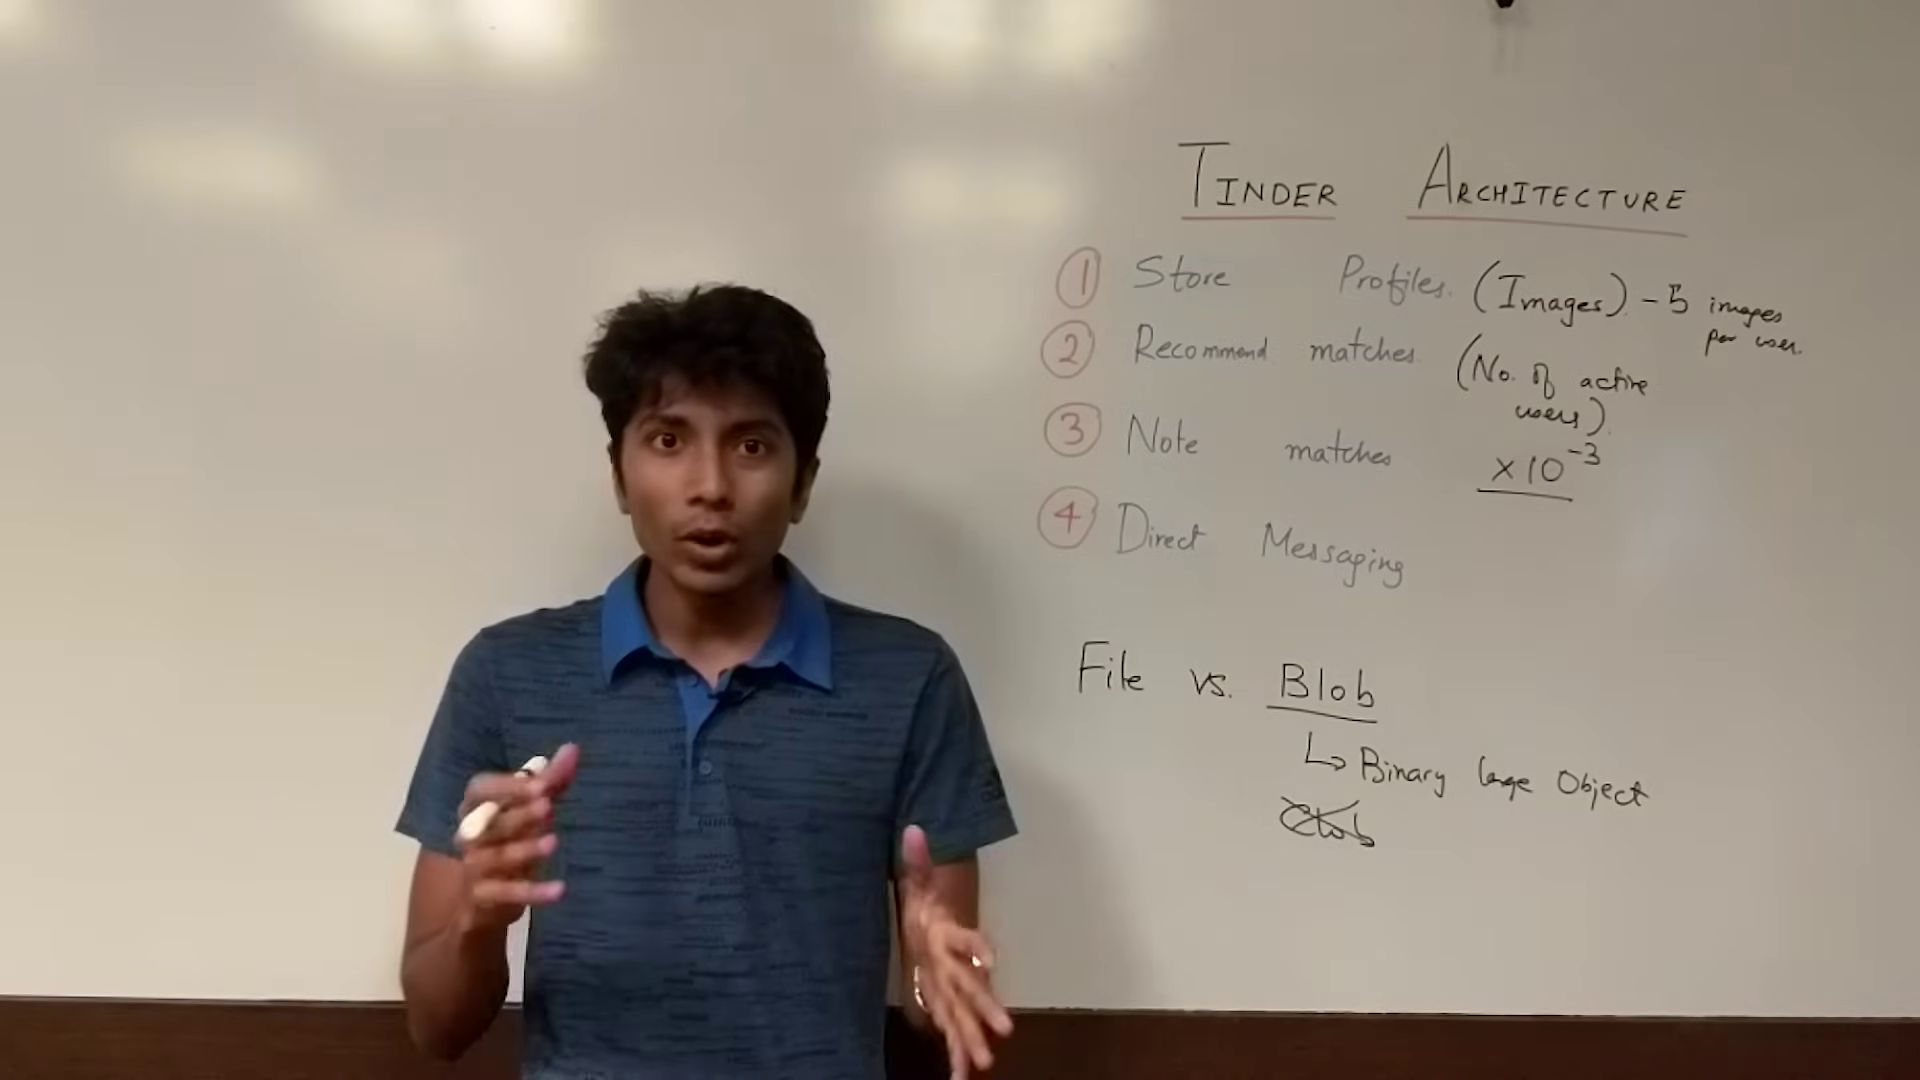 TINDER ARCHITECTURE
1 Store Profiles. (Images). - 5 images per user.
2 Recommend matches. (No. of active users).
3 Note matches x10^-3
4 Direct Messaging
File vs. Blob
↳ Binary large Object